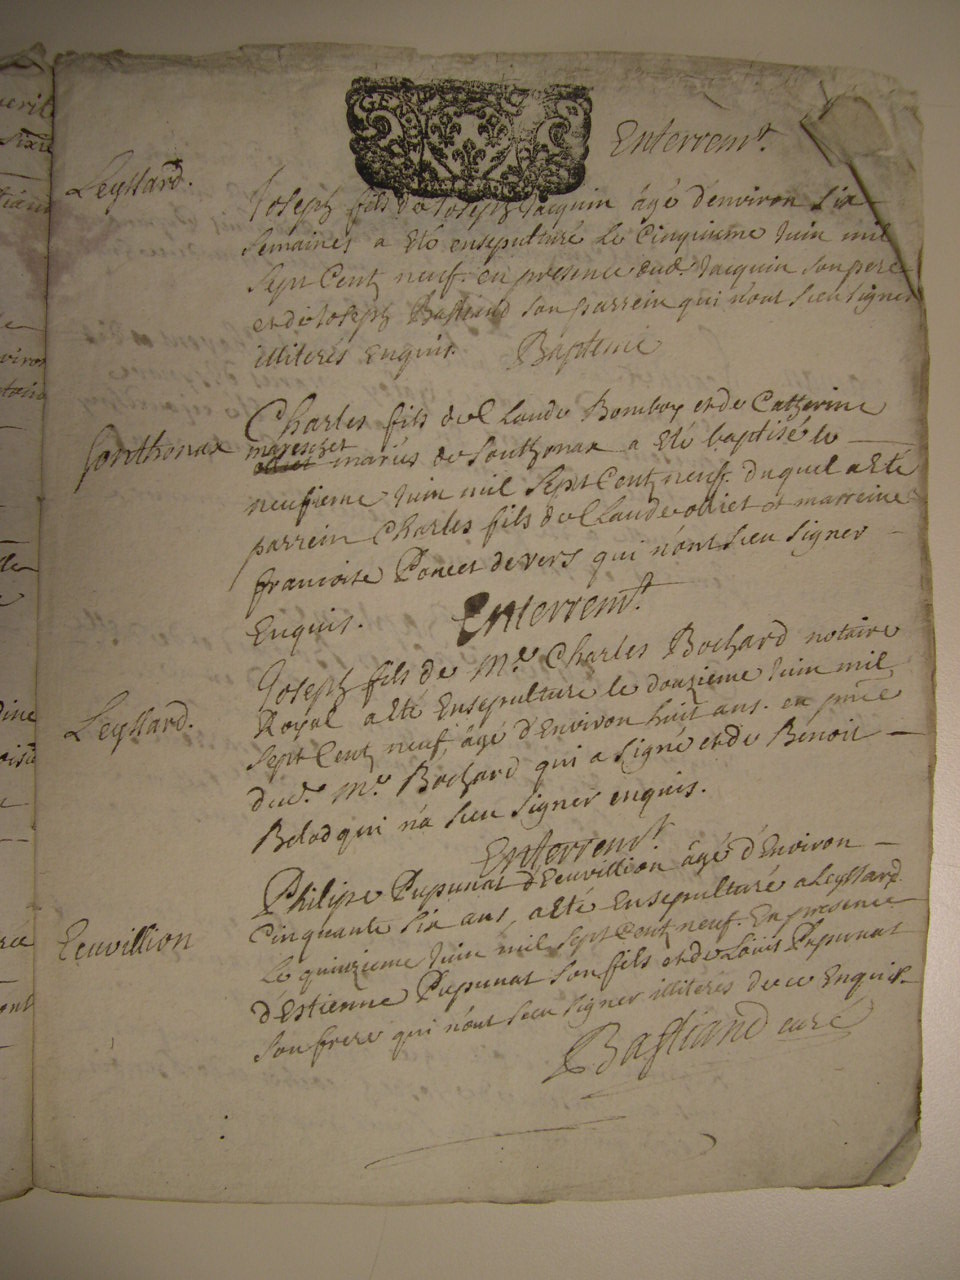 Enterrem.t
Leyssard.
Joseph fils de Joseph Jacquin âgé d'environ Six
Semaines a Eté ensepulturé le Cinquieme Juin mil
Sept Cent neuf. en presence dud. Jacquin son pere
et de Joseph Bastiand son parrein qui n'ont Sceu signer
illiterés Enquis. Bapteme
Sonthonax
Charles fils de Claude Bomboy et de Catherine
mareschet
mariés de Sonthonax a Eté baptisé le
neufieme Juin mil Sept Cent neuf. duquel a Eté
parrein Charles fils de Claude obriet et marreine
francoise Poncet de vers qui n'ont Sceu signer
Enquis. Enterrem.t
Leyssard.
Joseph fils de M.e Charles Bochard notaire
Royal a Eté Ensepulturé le douzieme Juin mil
Sept Cent neuf, âgé d'Environ huit ans. en pnce
dud. M.e Bochard qui a signé et de Benoit
Belod qui n'a Sceu signer enquis.
Enterrem.t
Ecuvillion
Philipe Pupunat d'Ecuvillion âgé d'Environ
Cinquante Six ans, a Eté Ensepulturé a Leyssard
Le quinzieme Juin mil Sept Cent neuf. En presence
d'Estienne Pupunat son fils et de Louis Pupunat
son frere qui n'ont Sceu signer illiterés de ce Enquis
Bastiand curé